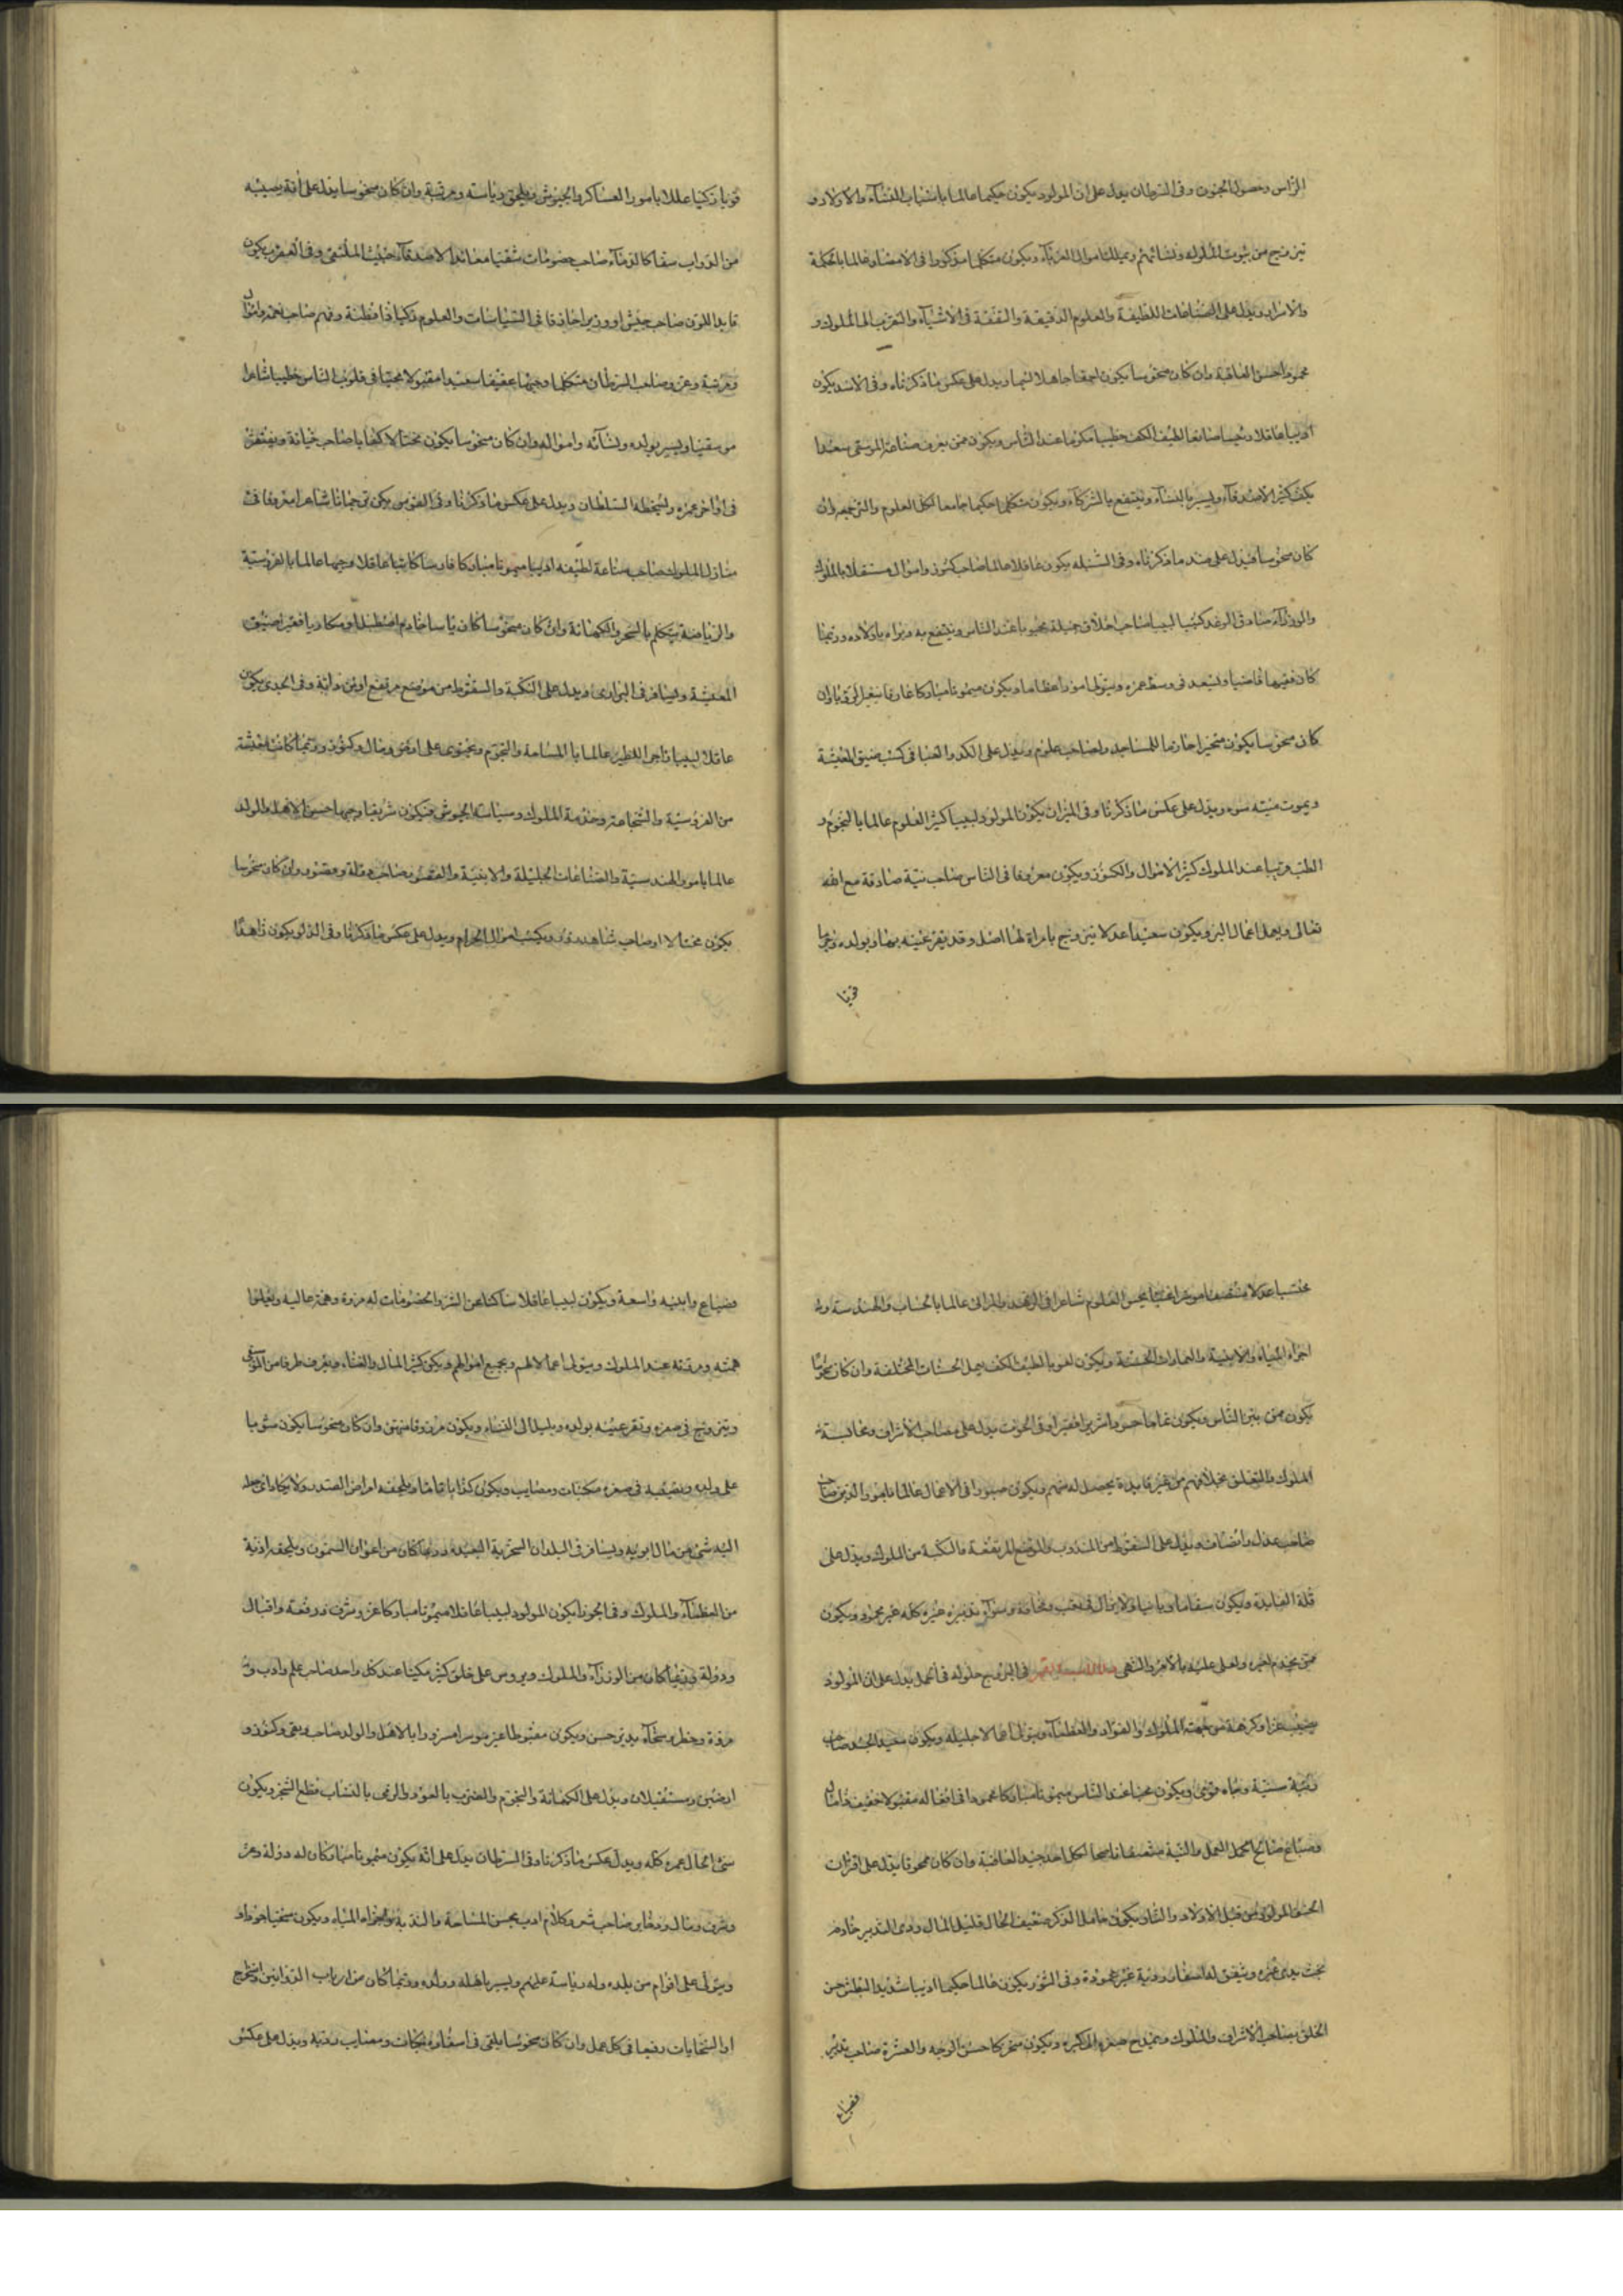 الرأس وحصول الجنون وفى السرطان يدل على ان المولود يكون حكيما عالما باسباب النساء والاولاد و
يتزوج من بيوت الملوك ونسائهم ويملك اموال الغرباء ويكون متكلما مذكورا فى الامصار عالما بالحكمة
والاسرار ويدل على الصناعات اللطيفة والعلوم الدقيقة والثقة فى الاشياء والتقرب الى الملوك و
محمودا حسن العاقبة وان كان منحوسا يكون احمقا جاهلا لئيما ويدل على عكس ما ذكرناه وفى الاسد يكون
اديبا عاقلا رئيسا صانعا لطيف الكف خطيبا مكرما عند الناس ويكون ممن يعرف صناعة الموسقى سعيدا
كثير الاصدقاء ويسر بالنساء وينتفع بالشركاء ويكون متكلما حكيما جامعا لكل العلوم وان
كان منحوسا فيدل على ضد ما ذكرناه وفى السنبله يكون عاقلا عالما صاحب كنوز واموال بالملوك
والوزراء صادق الوعد لبيبا صاحب اخلاق جميلة محبوبا عند الناس وينتفع به وبراه باولاده وربما
كان فقيها قاضيا ويسعد فى وسط عمره ويتولى امورا عظاما ويكون ميمونا مباركا عارفا وان
كان منحوسا يكون للمساجد وصاحب علوم ويدل على الكد والعنا فى كسب ضيق المعيشة
ويموت ميتة سوء ويدل على عكس ما ذكرنا وفى الميزان يكون المولود لبيبا كثير العلوم عالما بالنجوم و
الطب عند الملوك كثير الاموال والكنوز ويكون معروفا فى الناس صاحب نية صادقة مع الله
تعالى ويعمل اعمال البر ويكون سعيدا عدلا يتزوج بامراة لها اصل وقد تقر عينيه بها وبولده
قويا
قويا زكيا عللا بامور العساكر والجيوش ويلحق رياسة ومرتبة وان كان منحوسا يدل على أنه يصيبه
من الدواب سفاكا للدماء صاحب خصومات شقيا معاندا الاصدقاء خبيث الملتقى وفى العقرب يكون
صاحب جيش او وزيرا حاذقا فى السياسات والعلوم ذكيا ذا فطنة وفهم صاحب
ومرتبة وعز وصاحب السرطان متكلما وجيها عفيفا سعيدا مقبولا محببا فى قلوب الناس خطيبا شاعرا
موسقيا ويسر بولده ونسائه وامواله وان كان منحوسا يكون محتالا كذابا صاحب خيانة ويفتقر
فى اواخر عمره ويسخطه السلطان ويدل على عكس ما ذكرنا وفى القوس يكن ترجمانا شاعرا معروفا فى
منازل الملوك صاحب صناعة لطيفه اديبا ميمونا مباركا فارسا كاتبا عاقلا وجيها عالما بالفروسية
والرياضة يتكلم بالسحر والكهانة وان كان منحوسا كان خادم اصطبل او مكاريا فقيرا ضيق
المعيشة ويسافر فى البرارى ويدل على النكبة والسقوط من موضع مرتفع او من دابة وفى الجدى يكون
عاقلا لبيبا عالما بالمساحة والنجوم ويحتوى على ارض ومال وكنوز وربما كانت معيشته
من الفروسية والشجاعة وخدمة الملوك وسياسة الجيوش فيكون شريفا وجيها حسن الاهل والولد
عالما بامور الهندسة والصناعات الجليلة والابنية وصاحب وان كان منحوسا
يكون محتالا او صاحب شاهد زور ويكسب اموال الحرام ويدل على عكس ما ذكرنا وفى الدلو يكون زاهدا
محتسبا عدلا منصفا يحسن العلوم شاعرا فى الزهد والمراثى عالما بالحساب والهندسة و
اجراء المياه والابنية والعمارات ويكون لغويا لطيف الكف يعمل المختلفة وان كان منحوسا
يكون ممن بين الناس ويكون غماما حسودا فقيرا وفى الحوت يدل على مصاحب الاشراف ومخالسة
الملوك والتخلق باخلاقهم من غير فايدة يحصل له منهم ويكون صبورا فى الاعمال عالما بامور الدين
صاحب عدل وانصاف ويدل على السقوط من والموضع المرتفعة والنكبة من الملوك ويدل على
قلة الفايدة ويكون سقاما ولا يزال فى تعب وسوء تدبيره خيره كله غير محمود ويكون
ممن يخدم غيره فى البروج حلوله فى الحمل يدل على ان المولود
عزا وكرامة من جهة الملوك والقواد والعظماء ويتولى اعمالا جليله ويكون سعيد الجد صاحب
رتبة سنية وجاه قوى ويكون محببا عند الناس ميمونا مباركا محمودا فى افعاله مقبولا
وضياع العمل والنية منصفا ناصحا لكل احد جيد العاقبة وان كان يدل على
من قبل الاولاد ويكون خامل الذكر ضعيف الحال قليل المال ردى التدبير
ويتفق له اسفار ردية غير محمودة وفى الثور يكون عالما حكيما اديبا شديد البطش حسن
الخلق يصاحب الاشراف والملوك الى كبره ويكون حسن الوجه والعشرة صاحب
ضياع
وضياع وابنيه واسعة ويكون لبيبا عاقلا ساكتا عن الشر والخصومات له مروة وهمة عاليه
همته ومرتبته عند الملوك ويتولى اعمالهم ويجمع اموالهم ويكون كثير المال والغناء ويعرف طرفا من الموسقى
ويتزوج فى صغره وتقر عينيه بولده ويميل الى النساء ويكون مرزوقا منهن وان كان منحوسا يكون
على والديه ويصيبه فى صغره نكبات ومصايب ويكون كذابا ويلحقه امراض الصدر ولا يكاد ان
اليه شئ من مال ابويه ويسافر فى البلدان البعيده وربما كان من اعوان ويلحقه اذية
من العظماء والملوك وفى الجوزا يكون المولود لبيبا عاقلا ميمونا مباركا عز وشرف ورفعة واقبال
ودولة وربما كان من الوزراء والملوك ويروس على خلق كثير مكينا عند كل واحد صاحب علم وادب و
مروة وسخاء بتدبير حسن ويكون مغبوطا مسرورا بالاهل والولد صاحب وكنوز و
ارضين ومستقبلات ويدل على الكهانة والنجوم والضرب بالعود والرمى بالنشاب ويكون
الحال عمره كله ويدل عكس ما ذكرنا وفى السرطان يدل على انه يكون ميمونا مباركا له دولة وعز
وشرف ومال صاحب شعر وكلام ادب يحسن المساحة واجراء المياه ويكون سخيا جوادا
ويتولى على اقوام من بلده وله رياسة عليهم ويسر باهله وولده وربما كان من ارباب الدواوين
او الجنايات رفيعا فى كل عمل وان كان منحوسا يلقى فى اسفاره نكبات ومصايب رديه ويدل على عكس